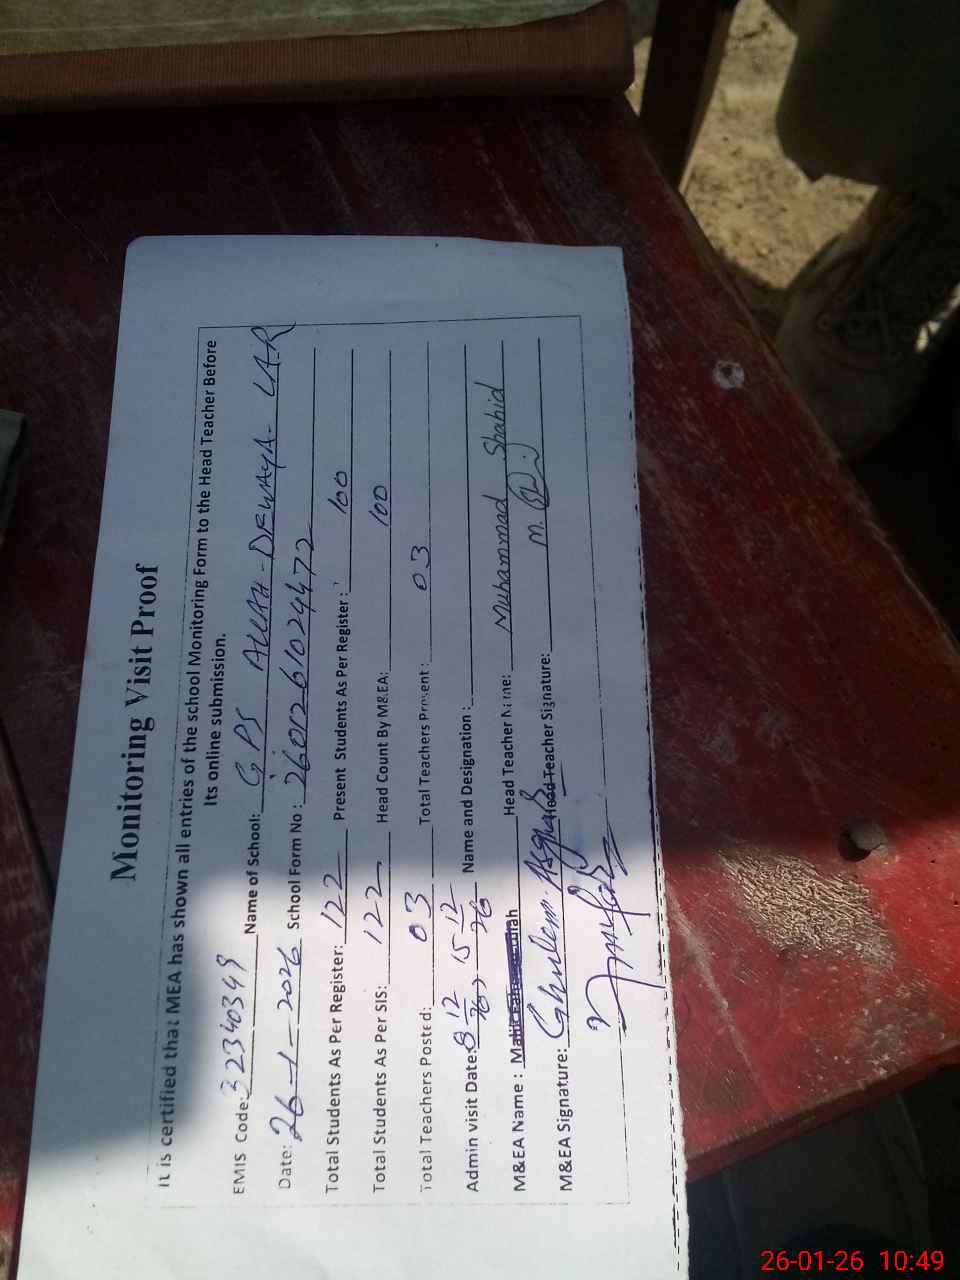 Monitoring Visit Proof
It is certified that MEA has shown all entries of the school Monitoring Form to the Head Teacher Before
Its online submission.
EMIS Code: 32340349 Name of School: GPS ALLAH-DEWAYA-LAR
Date: 26-1-2026 School Form No : 2601261024472
Total Students As Per Register: 122 Present Students As Per Register: 100
Total Students As Per SIS: 122 Head Count By M&EA: 100
Total Teachers Posted: 03 Total Teachers Present : 03
Admin visit Date: 8 12, 15 12 Name and Designation :
M&EA Name : Ghulam Asghar Head Teacher Name: Muhammad Shahid
M&EA Signature: Head Teacher Signature: M.
26-01-26 10:49